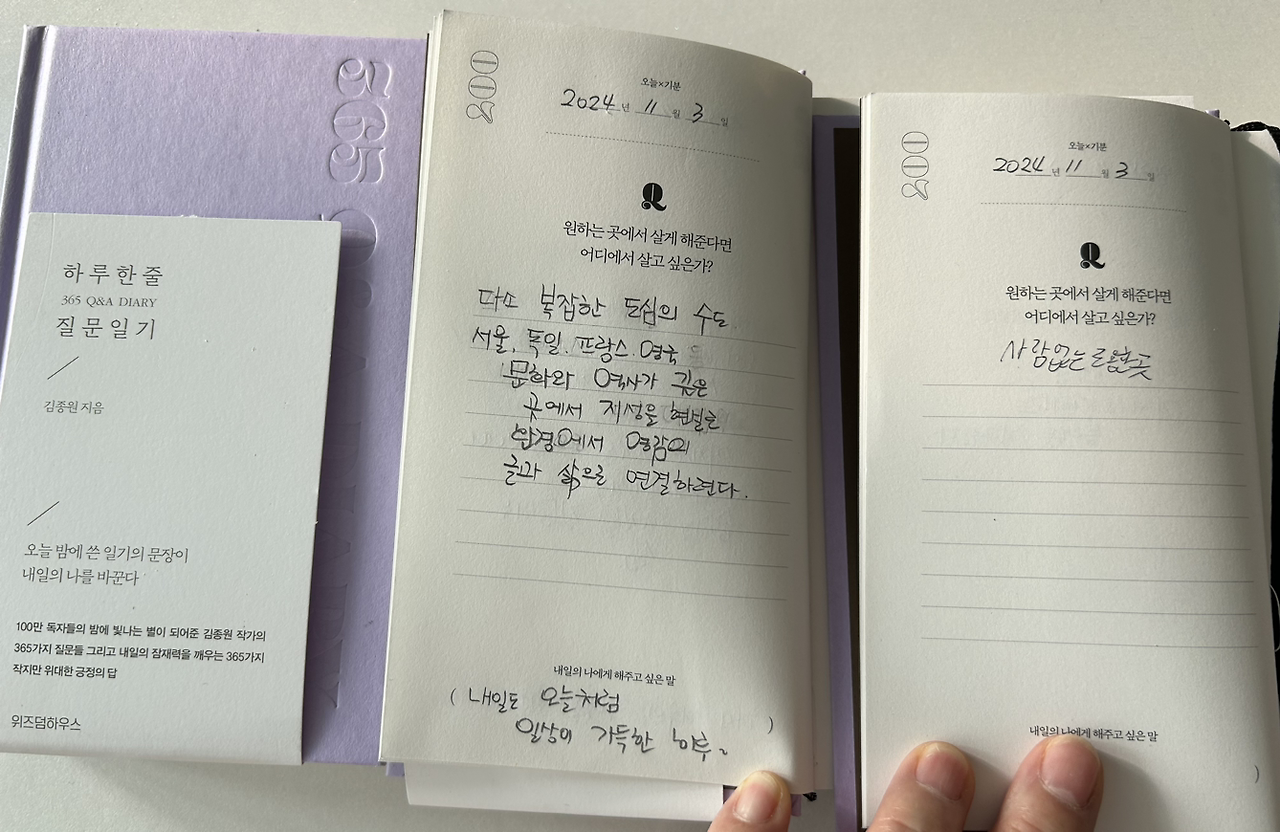 365
하루 한 줄
365 Q&A DIARY
질문 일기
김종원 지음
오늘 밤에 쓴 일기의 문장이
내일의 나를 바꾼다
100만 독자들의 밤에 빛나는 별이 되어준 김종원 작가의
365가지 질문들 그리고 내일의 잠재력을 깨우는 365가지
작지만 위대한 긍정의 답
위즈덤하우스
200
오늘×기분
2024년 11월 3일
Q
원하는 곳에서 살게 해준다면
어디에서 살고 싶은가?
다소 복잡한 도심의 수도
서울, 독일, 프랑스, 영국
문화와 역사가 깊은
곳에서 지성을
환경에서 영감의
글과 삶으로 연결하련다.
내일의 나에게 해주고 싶은 말
( 내일도 오늘처럼
일상이 가득한 하루~ )
200
오늘×기분
2024년 11월 3일
Q
원하는 곳에서 살게 해준다면
어디에서 살고 싶은가?
사람없는 조용한곳
내일의 나에게 해주고 싶은 말
)